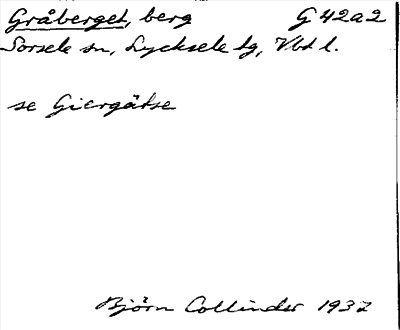 Gråberget, berg G 42a2
Sorsele sn, Lycksele lg, Vbt l.
se Giergåtse
Björn Collinder 1937